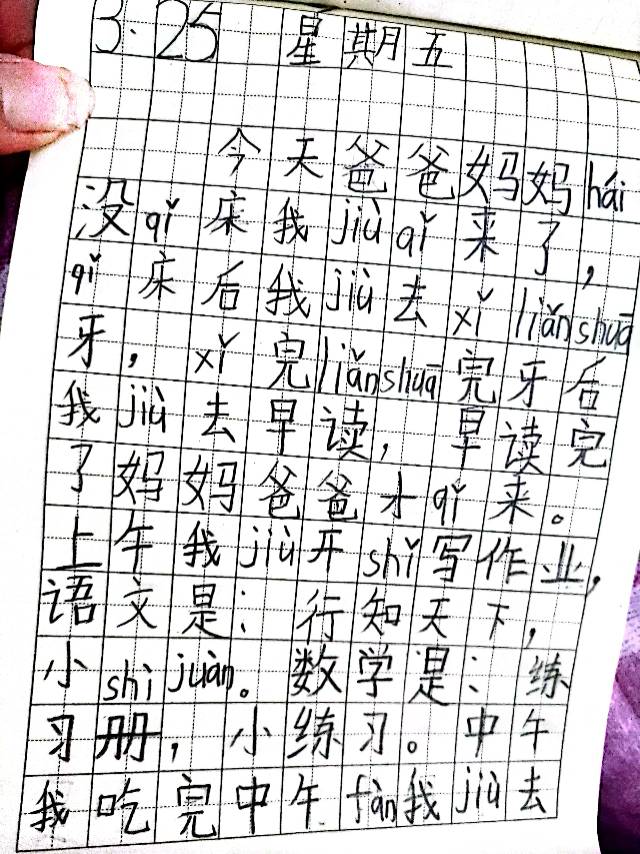 3.25 星期五
今天爸爸妈妈hái
没qǐ床我jiù qǐ来了，
qǐ床后我jiù去xǐ liǎn shuā
牙，xǐ完liǎn shuā完牙后
我jiù去早读，早读完
了妈妈爸爸才qǐ来。
上午我jiù开shǐ写作业，
语文是：行知天下，
小shì juàn。数学是：练
习册，小练习。中午
我吃完中午fàn我jiù去